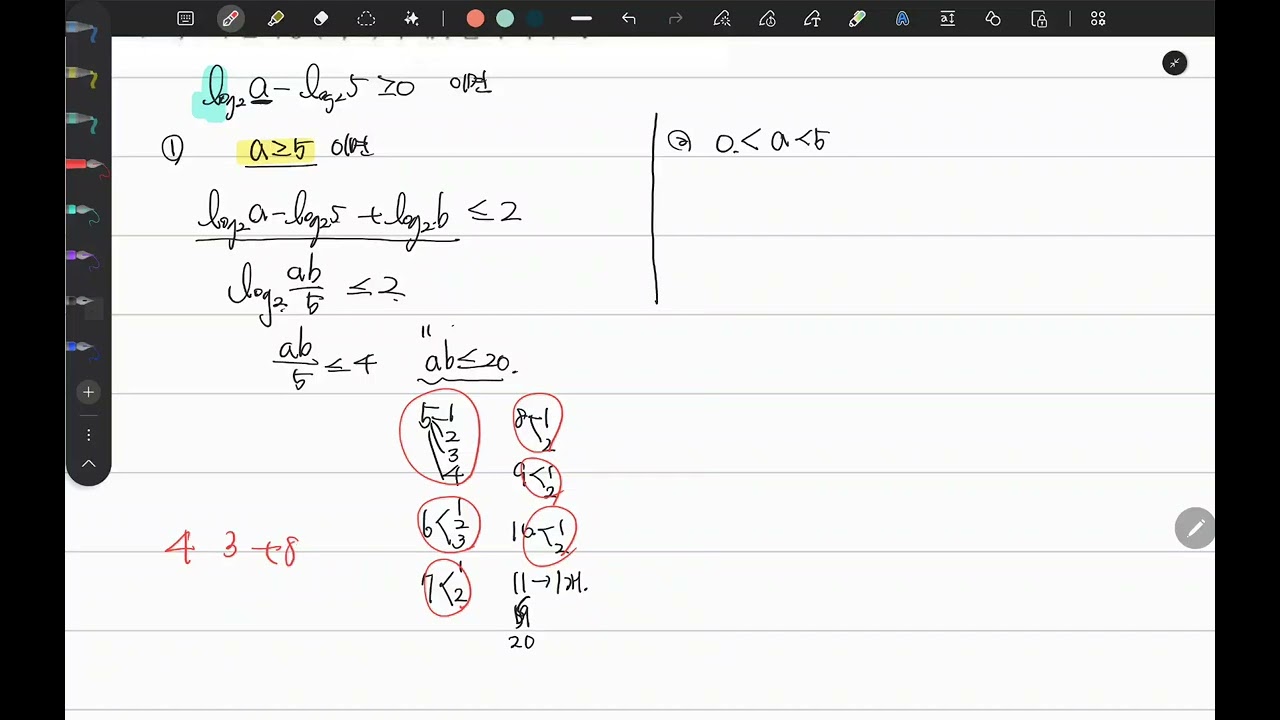 log₂a - log₂5 ≥ 0 이면
① a ≥ 5 이면
log₂a - log₂5 + log₂b ≤ 2
log₂ ab/5 ≤ 2
ab/5 ≤ 4 ab ≤ 20.
5 1 2 3 4
6 < 1 2 3
7 < 1 2
8 1 2
9 < 1 2
10 < 1 2
11 → 1개.
20
4 3 + 8
② 0 < a < 5